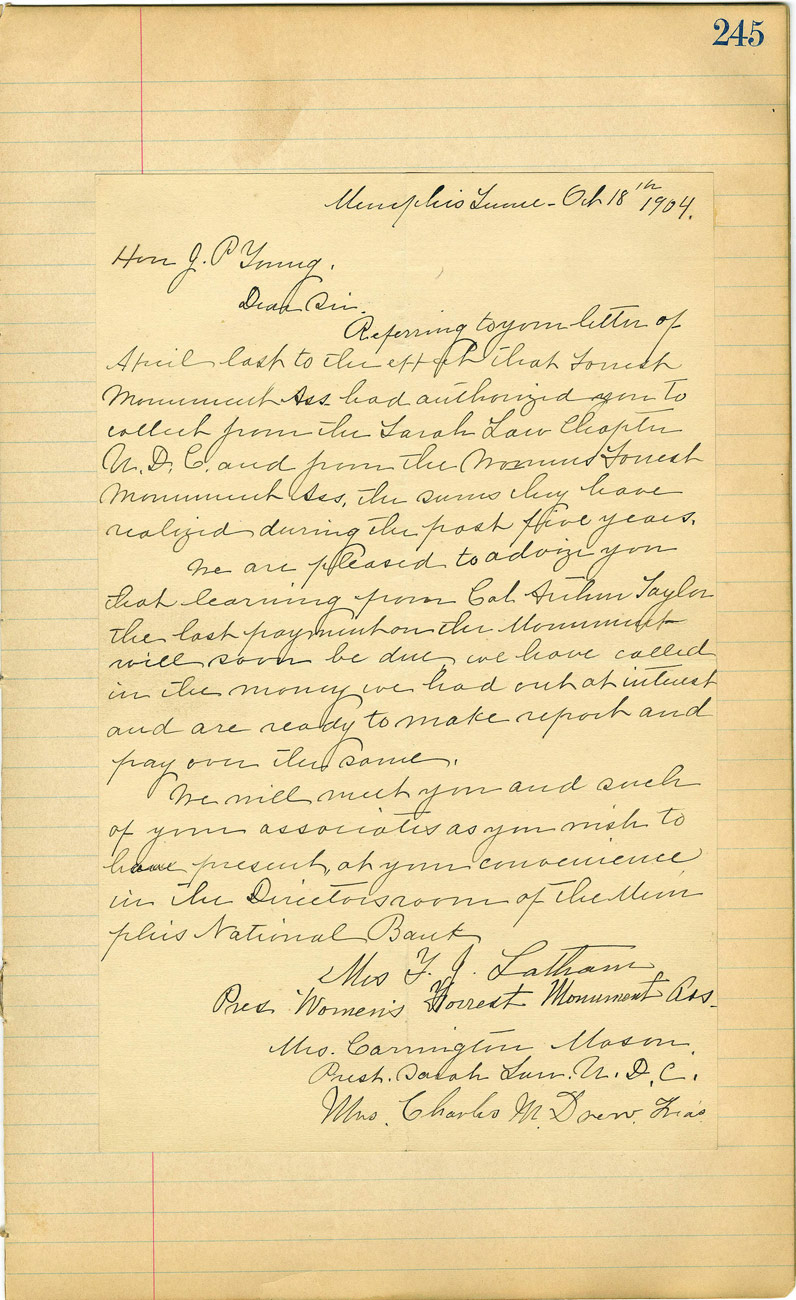 245
Memphis Tenn - Oct 18th 1904.
Hon J. P Young.
Dear Sir.
Referring to your letter of
April last to the effect that Forrest
Monument Ass had authorized you to
collect from the Sarah Law Chapter
U. D. C. and from the Womens Forrest
Monument Ass, the sums they have
realized during the past five years.
We are pleased to advize you
that learning from Col Arthur Taylor
the last payment on the Monument
will soon be due, we have called
in the money we had out at interest
and are ready to make report and
pay over the same.
We will meet you and such
of your associates as you wish to
have present, at your convenience
in the Directors room of the Mem
phis National Bank
Mrs T. J. Latham
Pres Women's Forrest Monument Ass-
Mrs. Carrington Mason.
Prest. Sarah Law. U. D. C.
Mrs. Charles M. Drew. Treas